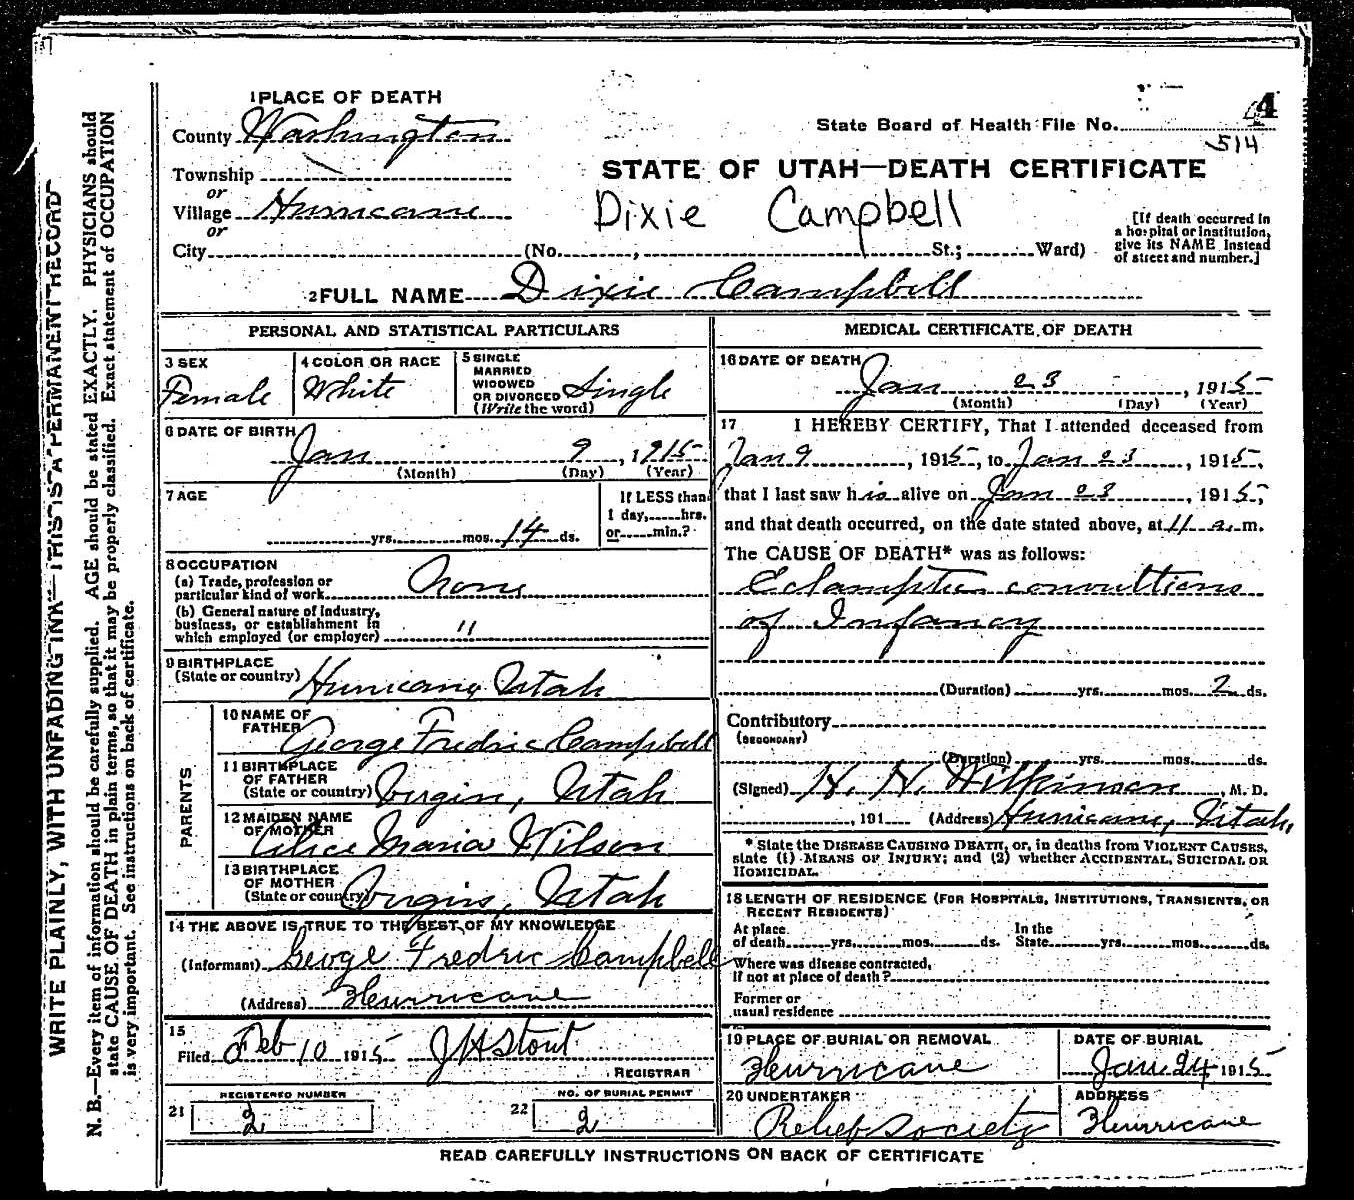 WRITE PLAINLY, WITH UNFADING INK—THIS IS A PERMANENT RECORD
N. B.—Every item of information should be carefully supplied. AGE should be stated EXACTLY. PHYSICIANS should
state CAUSE OF DEATH in plain terms, so that it may be properly classified. Exact statement of OCCUPATION
is very important. See instructions on back of certificate.
1 PLACE OF DEATH
County Washington
Township
or
Village Hurricane
or
City (No. , St.; Ward)
State Board of Health File No. 4
514
STATE OF UTAH—DEATH CERTIFICATE
Dixie Campbell
[If death occurred in
a hospital or institution,
give its NAME instead
of street and number.]
2 FULL NAME Dixie Campbell
PERSONAL AND STATISTICAL PARTICULARS
3 SEX
Female
4 COLOR OR RACE
White
5 SINGLE
MARRIED
WIDOWED
OR DIVORCED
(Write the word)
Single
6 DATE OF BIRTH
Jan 9, 1915
(Month) (Day) (Year)
7 AGE
yrs. mos. 14 ds.
If LESS than
1 day, hrs.
or min.?
8 OCCUPATION
(a) Trade, profession or
particular kind of work None
(b) General nature of Industry,
business, or establishment in
which employed (or employer) "
9 BIRTHPLACE
(State or country) Hurricane Utah
PARENTS
10 NAME OF
FATHER George Fredric Campbell
11 BIRTHPLACE
OF FATHER
(State or country) Virgin, Utah
12 MAIDEN NAME
OF MOTHER Alice Maria Wilson
13 BIRTHPLACE
OF MOTHER
(State or country) Virgin, Utah
14 THE ABOVE IS TRUE TO THE BEST OF MY KNOWLEDGE
(Informant) George Fredric Campbell
(Address) Hurricane
15
Filed Feb 10 1915 J H Stout
REGISTRAR
REGISTERED NUMBER
21 2
NO. OF BURIAL PERMIT
22 2
MEDICAL CERTIFICATE OF DEATH
16 DATE OF DEATH
Jan 23, 1915
(Month) (Day) (Year)
17 I HEREBY CERTIFY, That I attended deceased from
Jan 9, 1915, to Jan 23, 1915,
that I last saw h is alive on Jan 23, 1915,
and that death occurred, on the date stated above, at 11 a. m.
The CAUSE OF DEATH* was as follows:
Eclamptic convultions
of Infancy
(Duration) yrs. mos. 2 ds.
Contributory
(SECONDARY)
(Duration) yrs. mos. ds.
(Signed) H. N. Wilkinson, M. D.
, 191 (Address) Hurricane, Utah.
* State the DISEASE CAUSING DEATH, or, in deaths from VIOLENT CAUSES,
state (1) MEANS OF INJURY; and (2) whether ACCIDENTAL, SUICIDAL OR
HOMICIDAL.
18 LENGTH OF RESIDENCE (FOR HOSPITALS, INSTITUTIONS, TRANSIENTS, OR
RECENT RESIDENTS)
At place
of death yrs. mos. ds.
In the
State yrs. mos. ds.
Where was disease contracted,
if not at place of death?
Former or
usual residence
19 PLACE OF BURIAL OR REMOVAL
Hurricane
DATE OF BURIAL
Jan. 24 1915
20 UNDERTAKER
Relief Society
ADDRESS
Hurricane
READ CAREFULLY INSTRUCTIONS ON BACK OF CERTIFICATE